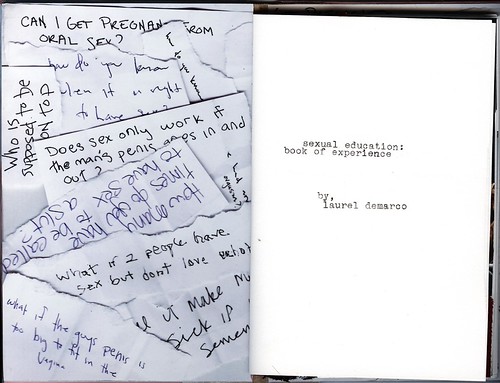 CAN I GET PREGNAN FROM
ORAL SEX?
how do you know
when it is right
to have
WHO IS
SUPPOSED TO BE
ON TOP
Does sex only work if
the man's penis goes in and
out?
How many
times do you
have to have sex
to be called
a slut?
what if 2 people have
sex but dont love
it make
sick if
semen
what if the guys penis is
too big to fit in the
vagina
sexual education:
book of experience
by,
laurel demarco